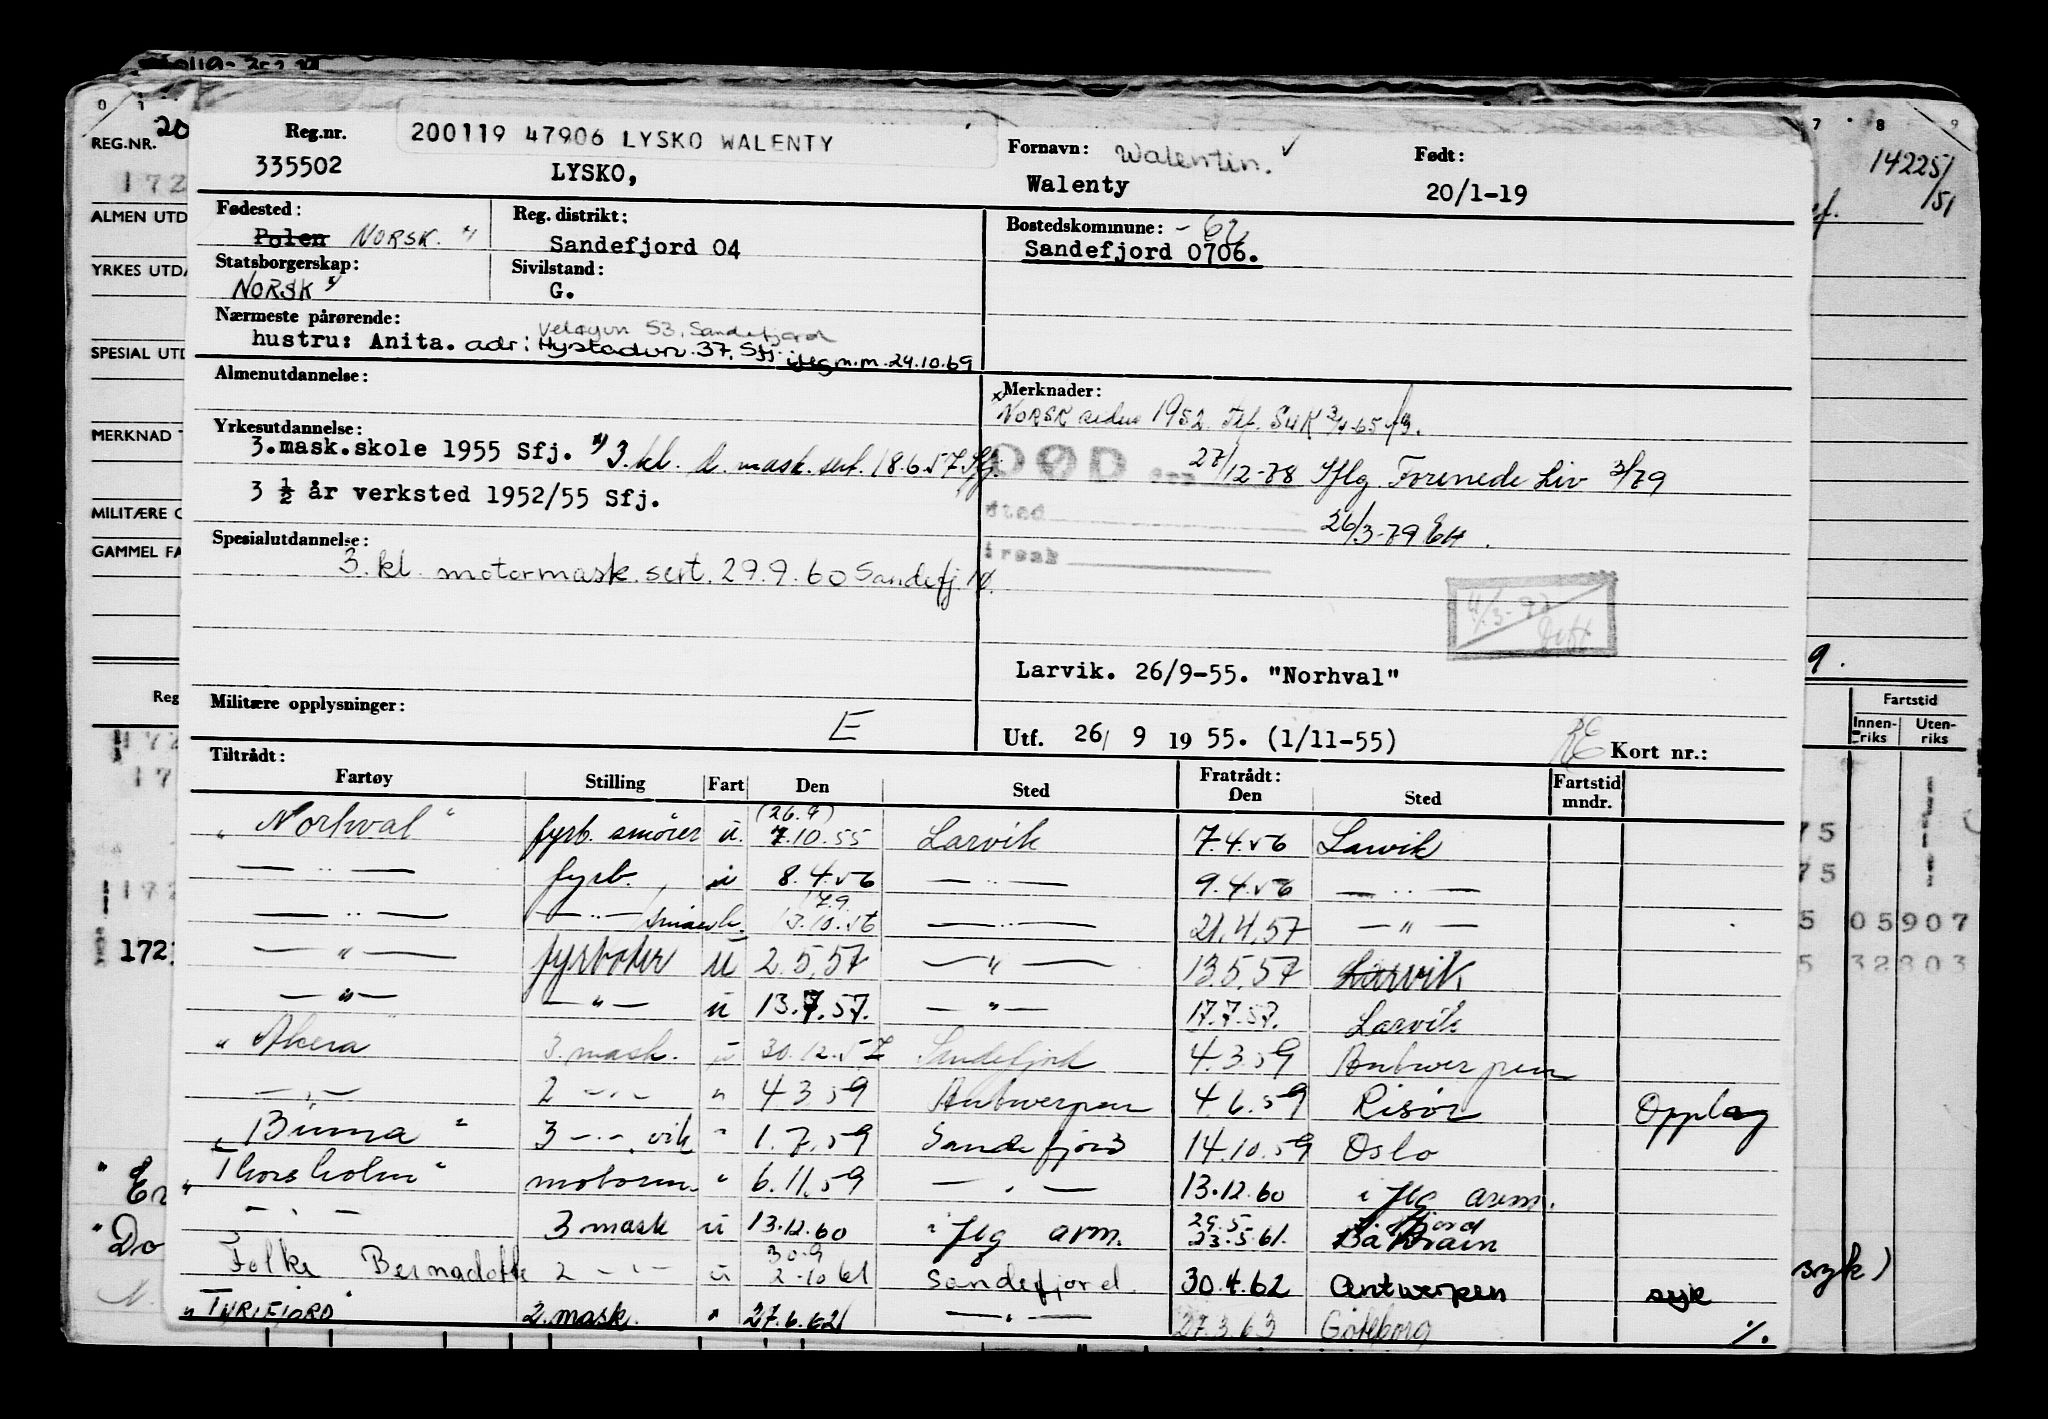 200119 47906 LYSKO WALENTY
Reg.nr. 335502
LYSKO,
Fornavn: Walentin. ✓
Walenty
Født: 20/1-19
14225/51
REG.NR. 20
172
Fødested: Polen NORSK. x)
Reg. distrikt: Sandefjord 04
Bostedskommune: - 62
Sandefjord 0706.
Statsborgerskap: NORSK x)
Sivilstand: G.
Nærmeste pårørende: Sandefjord
hustru: Anita. adr: Hystadvn. 37, Sfj. iflg m.m. 24.10.69
ALMEN UTD
YRKES UTDA
SPESIAL UTD
MERKNAD
MILITÆRE O
GAMMEL FA
Almenutdannelse:
Merknader:
x NORSK siden 1952
Yrkesutdannelse:
3.mask.skole 1955 Sfj. 3.kl. d. mask. sert. 18.6.57 Sfj.
3 ½ år verksted 1952/55 Sfj.
DØD den 27/12-78 Iflg Forenede Liv 3/79
sted 26/3-79 EH.
årsak
Spesialutdannelse:
3. kl. motormask. sert. 29.9.60 Sandefj.
Larvik. 26/9-55. "Norhval"
Militære opplysninger: E
Utf. 26/ 9 19 55. (1/11-55)
Kort nr.:
9.
Fartstid
Innen-riks
Uten-riks
Tiltrådt:
Fratrådt:
Fartøy Stilling Fart Den Sted Den Sted Fartstid mndr.
(26.9)
"Norhval" fyrb. smører u. 7.10.55 Larvik 7.4.56 Larvik
— " — fyrb. u 8.4.56 — " — 9.4.56 — " —
17.9
— " — — " — 13.10.56 — " — 21.4.57 — " —
— " — fyrbøter u 2.5.57 — " — 13.5.57 Larvik
— " — — " — u 13.7.57. — " — 17.7.57. Larvik
"Akera 3. mask. u 30.12.57 Sandefjord 4.3.59 Antwerpen
— " — 2 — " — " 4 3 59 Antwerpen 4.6.59 Risør Opplag
"Binna" 3 — " — vik " 1.7.59 Sandefjord 14.10.59 Oslo
"Thorsholm" motorm. " 6.11.59 — " — 13.12.60 i flg avm.
29.5
— " — 3 mask u 13.12.60 i flg avm. 23.5.61. Bahrain
30.9
Folke Bernadotte 2 — " — u 2.10 61 Sandefjord 30.4.62 Antwerpen syk
"TYRIFJORD" 2. mask. " 27.6.62 — " — 27.3.63 Göteborg %.
75
75
5 05907
5 32803
172
1721
syk)